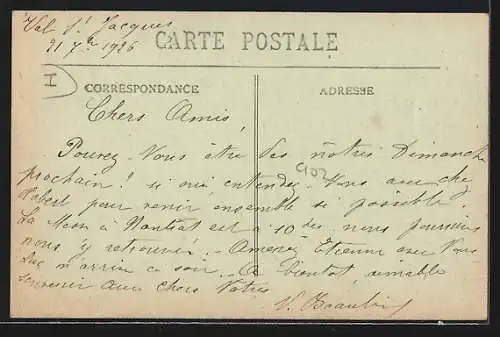 Val St Jacques
21 7bre 1926
CARTE POSTALE
I
CORRESPONDANCE
ADRESSE
Chers Amis,
Pouvez-Vous être des nôtres Dimanche
prochain! si oui entendez-Vous avec
Robert pour venir ensemble si possible.
La Messe à est à 10 nous pourrions
nous y retrouver. Amenez Etienne avec Vous
m'arrive ce soir. A bientôt, aimable
souvenir aux chers Vôtres
V.